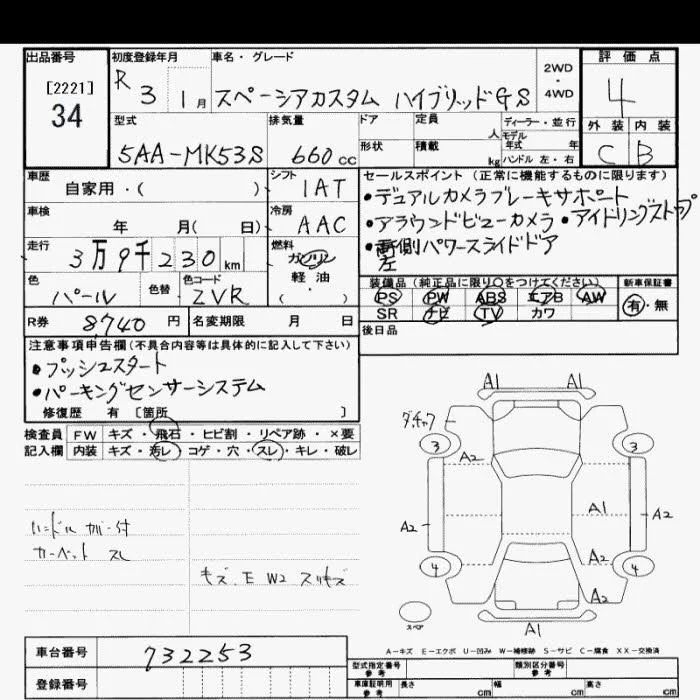 出品番号
[2221]
34
初度登録年月
R 3 1月
車名・グレード
スペーシアカスタム ハイブリッドGS
2WD
・
4WD
評価点
4
外装 内装
C B
型式
5AA-MK53S
排気量
660cc
ドア
形状
定員 人
積載 kg
ディーラー・並行
モデル
年式 年
ハンドル 左・右
車歴
自家用・( )
シフト
IAT
セールスポイント(正常に機能するものに限ります)
・デュアルカメラブレーキサポート
・アラウンドビューカメラ・アイドリングストップ
側パワースライドドア
左
車検
年 月( 日)
冷房
AAC
走行
3万9千230km
燃料
ガソリン
・
軽油
( )
色
パール
色替
色コード
ZVR
装備品(純正品に限り○をつけてください)
PS PW ABS エアB AW
SR ナビ TV カワ
新車保証書
有・無
R券
8,740円
名変期限 月 日
後日品
注意事項申告欄(不具合内容等は具体的に記入して下さい)
・プッシュスタート
・パーキングセンサーシステム
修復歴 有 〔箇所 〕
検査員 FW キズ・飛石・ヒビ割・リペア跡・×要
記入欄 内装 キズ・汚レ・コゲ・穴・スレ・キレ・破レ
ハンドル カバー付
カーペット スレ
キズ.E W2 スリキズ
A1 A1
3 3
A2
A1
A2 A2
A2
4 4
A2
スペア
A1
A-キズ E-エクボ U-凹み W-補修跡 S-サビ C-腐食 XX-交換済
車台番号
732253
登録番号
型式指定番号
参考
類別区分番号
参考
車庫証明用
参考
長さ cm 幅 cm 高さ cm